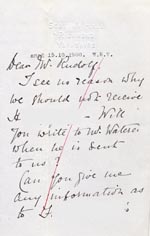 Dear Mr. Rudolf
I see no reason why
we should not receive
H        - Will
you write to Mr. Waterer
when he is sent
to us?
Can you give me
any information as
to H        's